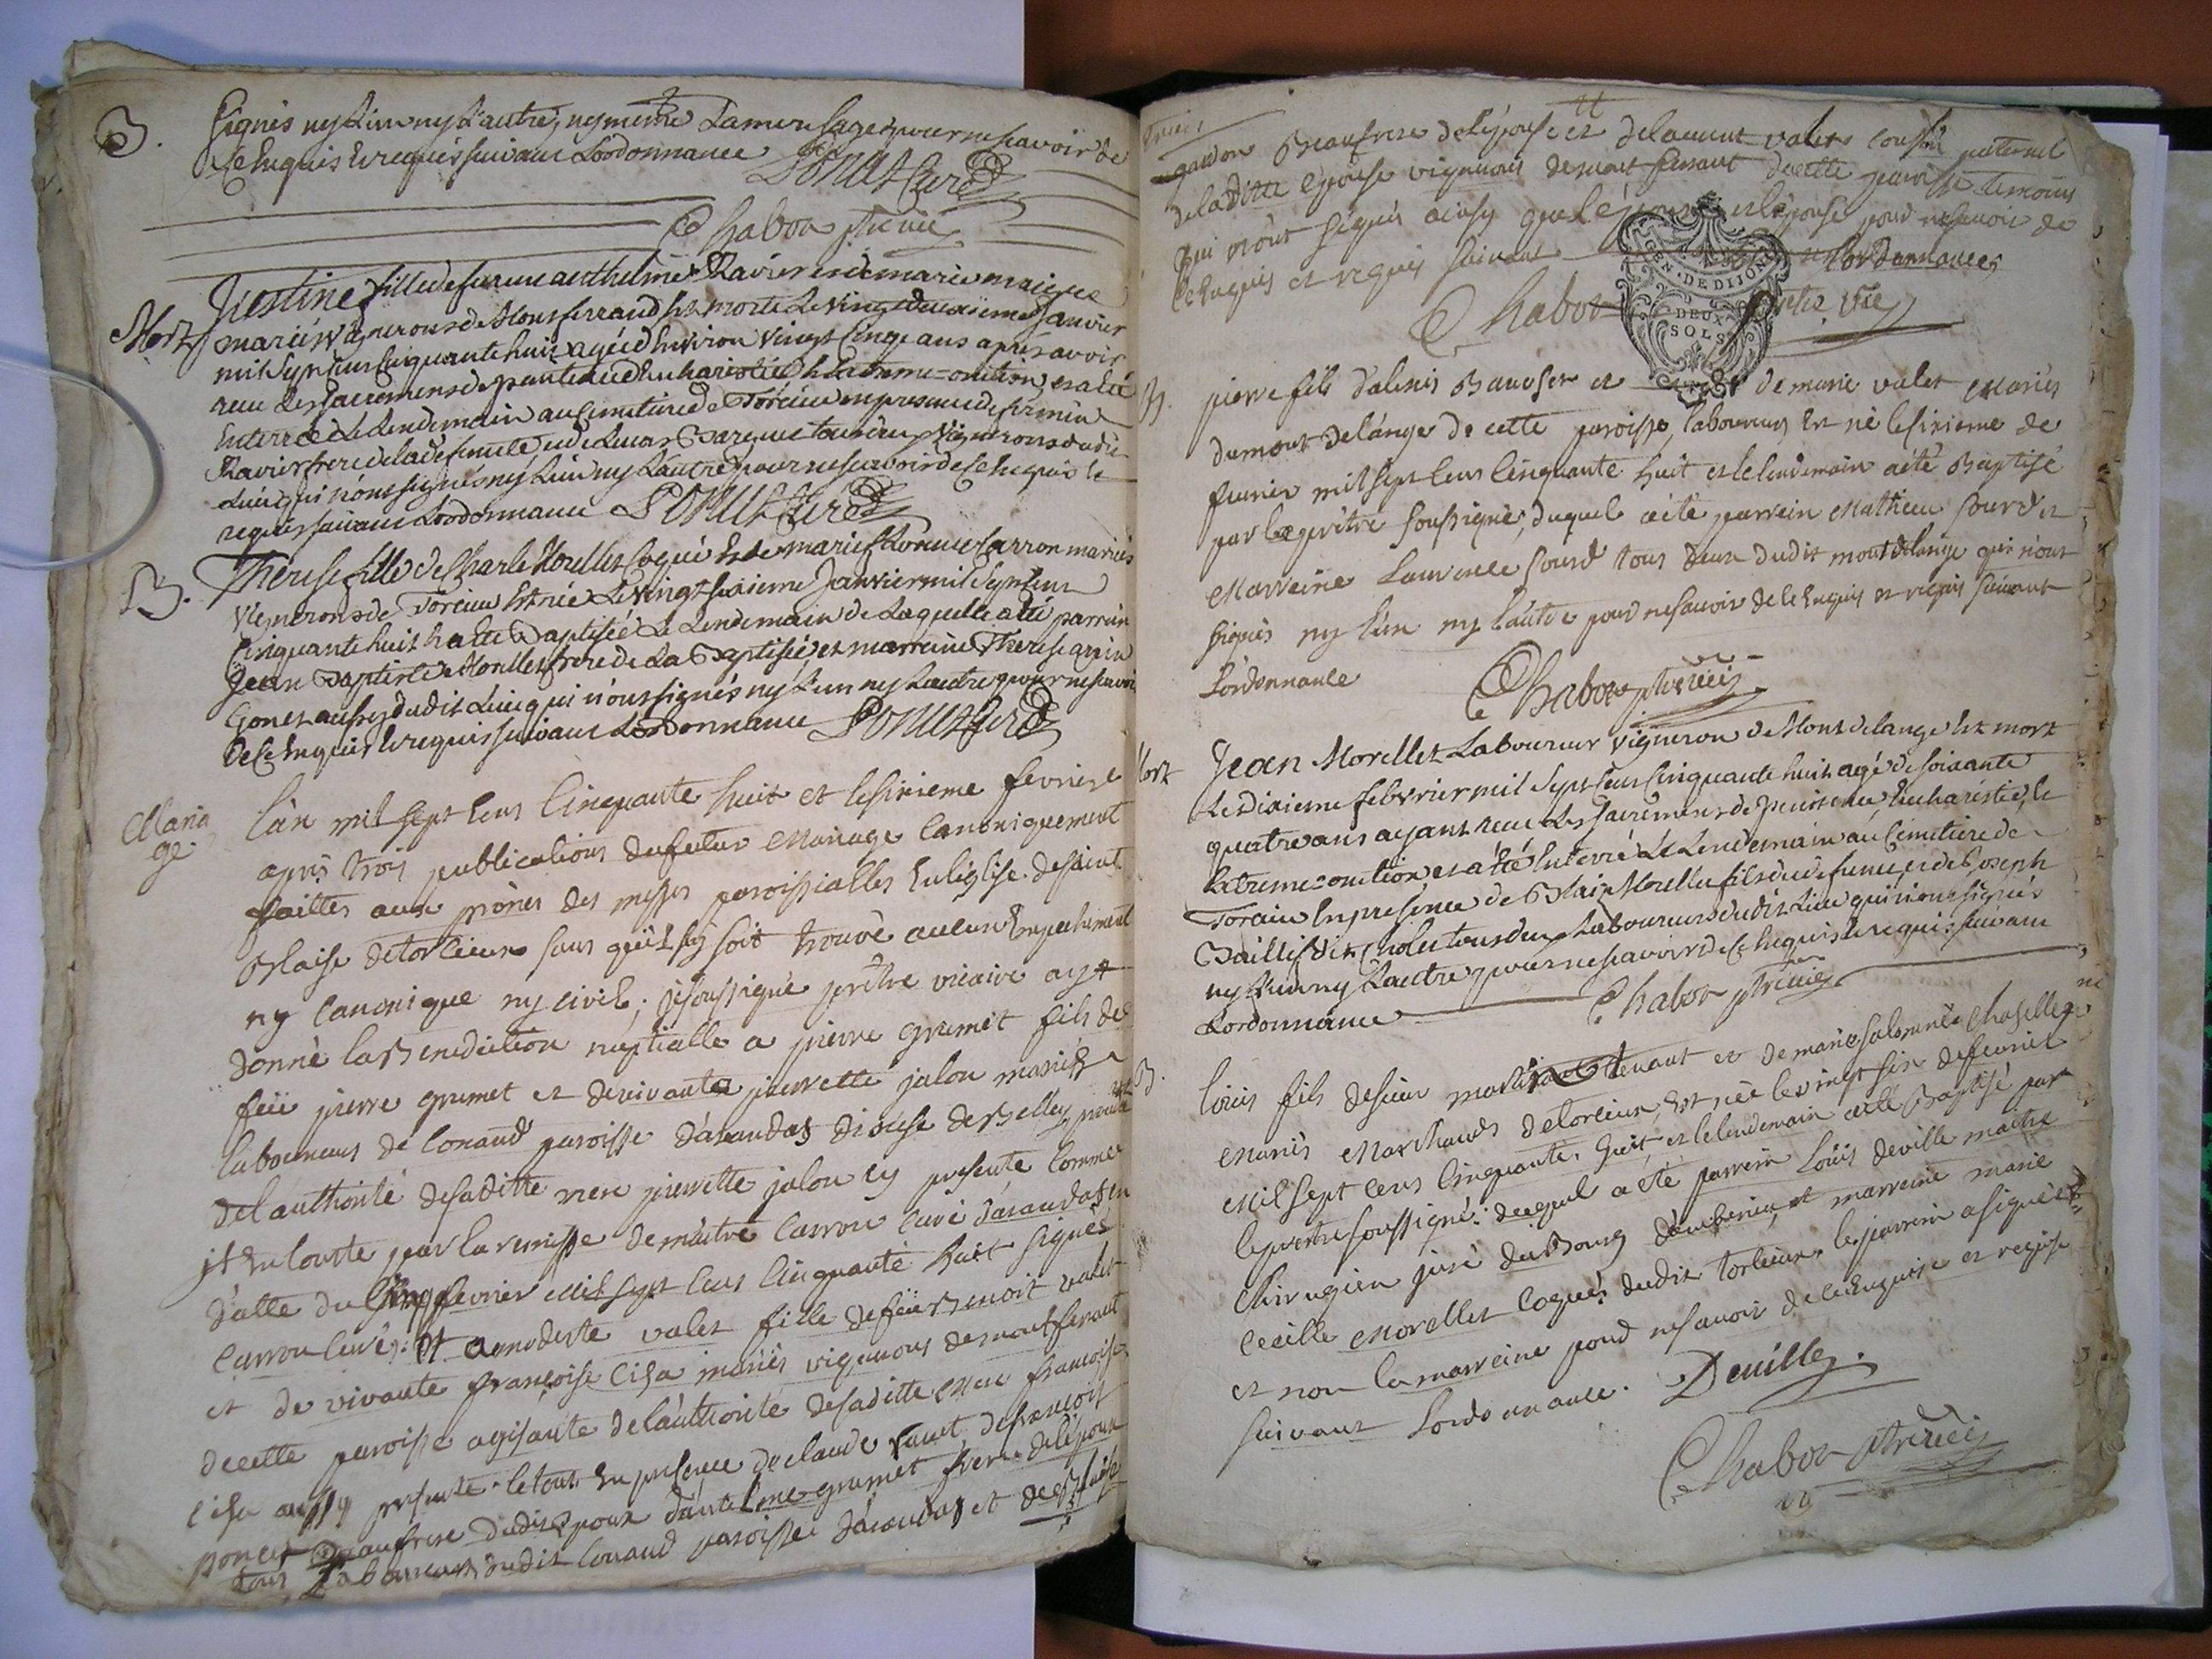 B.
signés ny L'un ny L'autre, ny meme La mere Sage pour ne scavoir de
ce Enquis & requis suivant Lordonnance Ponut Curé
Chabor ptre vic
Mort
Justine fille de feu anthelme Ravier et de marie maigre
mariés vignerons de Monferrand est morte Le vingt deuxieme Janvier
mil sept cens cinquante huit agée d'Environ vingt cinq ans apres avoir
reçu Les sacremens de penitence d'Eucharistie & Extreme=onction et a été
Enterrée Le Lendemain au cimetiere de Torcieu en presence de firmin
Ravier frere de la defunte, et de vignerons dudit
Lieu qui n'ont signés ny L'un ny L'autre pour ne scavoir de ce Enquis &
requis suivant Lordonnance Ponut Curé
B.
Therese fille de Charle Morellet Coqué et de marie Carron mariés
Vignerons de Torcieu est née Le vingt sixieme Janvier mil sept cens
Cinquante huit & a été Baptisée Le Lendemain de Laquelle a été parrain
Jean Baptiste Morellet frere de La Baptisée, et marraine Therese
dudit Lieu qui n'ont signés ny L'un ny L'autre pour ne scavoir
de ce Enquis & requis suivant Lordonnance Ponut Curé
Maria
ge.
L'an mil sept cens Cinquante huit et le sixieme fevrier
apris trois publications du futur Mariage Canoniquement
faittes aux prônes des messes paroissialles En l'église de saint
Blaise de torcieux sans qu'il sy soit trouvé aucun Empechement
ny canonique ny civil; je soussigné prêtre vicaire ay
donné la Benediction nuptialle a pierre grumet fils de
feü pierre grumet et de vivante pierrette jalon mariés
laboureurs de Conand paroisse d'arandas diocese de Belley,
de l'authorité de sa ditte mere pierrette jalon cy presente, comme
il En Conste par la remisse de maitre Carron curé d'arandas en
datte du cinq fevrier mil sept cens Cinquante huit signés
Carron curé: Et a modeste valet fille de feü Benoit valet
et de vivante françoise Cisa mariés vignerons de montferant
de cette paroisse agisante de l'authorité de sa ditte Mere françoise
Cisa aussy presente. le tout En presence de claude de françois
poncet Beaufrere dudit Epoux d'antelme grumet frere de l'Epoux
tous Laboureurs dudit Conand paroisse d'arandas et de
gaudon Beaufrere de l'épouse et de laurent valet Cousin paternel
de la ditte épouse vignerons de mont ferrant de cette paroisse temoins
qui n'ont signés ainsy que l'époux et l'épouse pour ne savoir de
ce Enquis et requis suivant Lordonnances
Chabor ptre vic
GEN. DE DIJON
DEUX
SOLS
B.
pierre fils d'alexis Bavoset et de marie valet Mariés
du mont de l'ange de cette paroisse, laboureurs Est né le sixieme de
fevrier mil sept cens Cinquante huit et le lendemain a été Baptisé
par le prêtre soussigné, duquel a été parrein Mathieu sourd et
Marreine Laurence sourd tous deux dudit mont de lange qui n'ont
signés ny l'un ny l'autre pour ne savoir de ce Enquis et requis suivant
Lordonnance
Chabor ptre vic
Mort
Jean Morellet Laboureur Vigneron de Mont de lange est mort
Le dixieme febvrier mil sept cens Cinquante huit agé de soixante
quatre ans ayant reçu Les sacremens de penitence, Eucharistie, &
Extreme=onction, et a été Enterré Le Lendemain au Cimetiere de
Torcieu En presence de Blaise Morellet fils du defunct, et de Joseph
tous deux Laboureurs dudit Lieu qui n'ont signés
ny L'un ny L'autre pour ne scavoir de ce Enquis & requis suivant
Lordonnance Chabor ptre vic
B.
Louis fils de sieur tenant et de marie salomée Chapelle
Mariés Marchands de torcieux, Est née le vingt six de fevrier
Mil sept cens Cinquante, huit, et le lendemain a été Baptisé par
le prêtre soussigné: duquel a été parrein Loüis deville maitre
Chirugien juré du Bourg d'ambérieu, et marreine marie
Cecille Morellet Coqué dudit torcieux. le parrein a signé
et non la marreine pour ne savoir de ce Enquise et requise
suivant Lordonnance. Deville
Chabor ptre vic